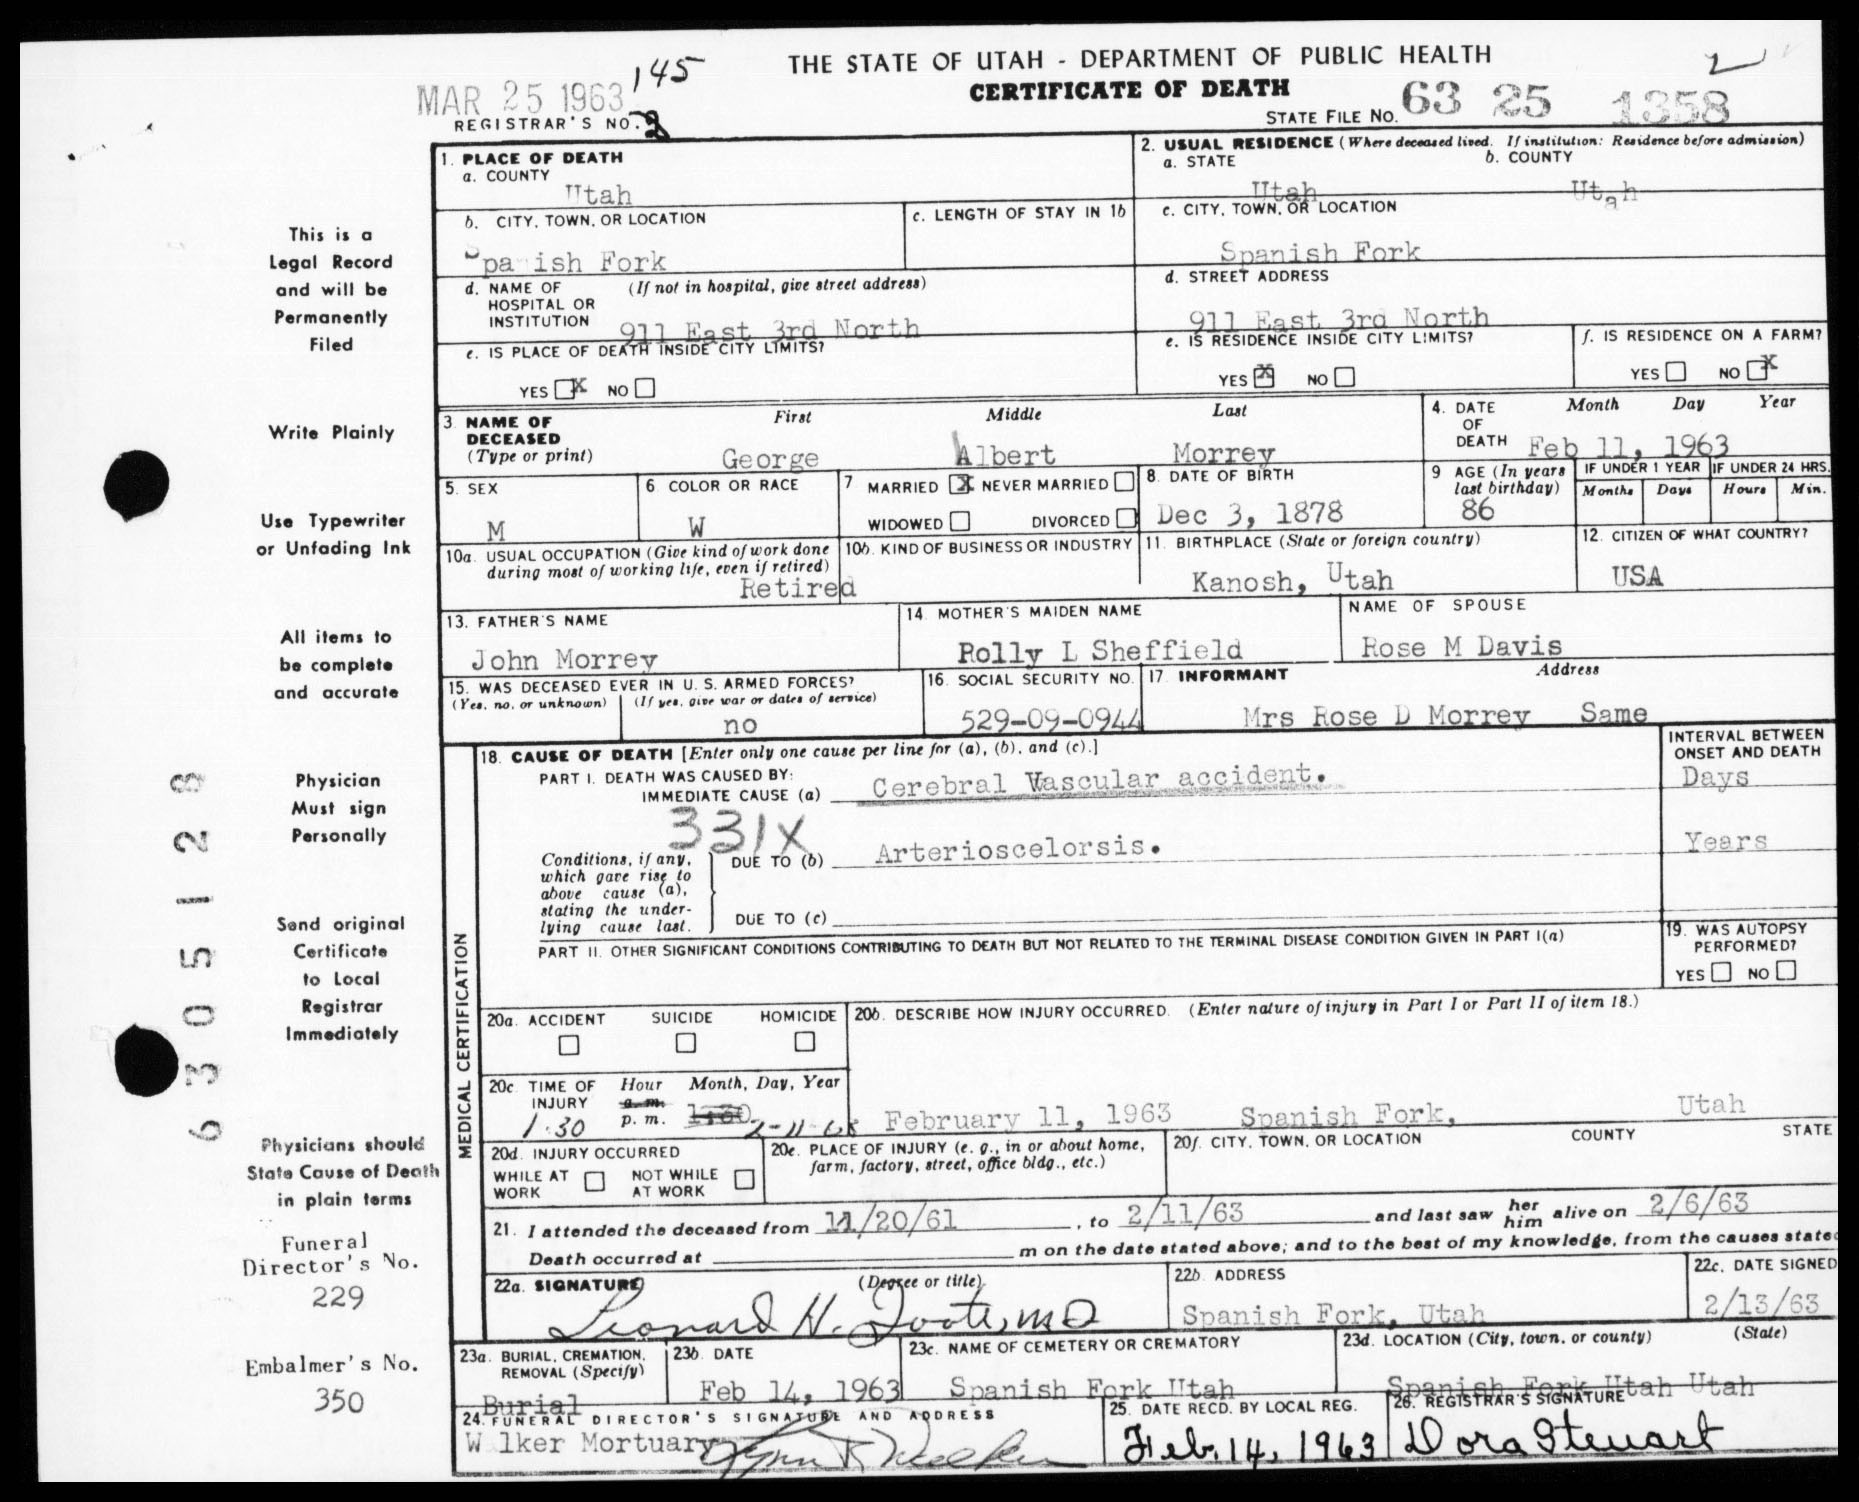 THE STATE OF UTAH - DEPARTMENT OF PUBLIC HEALTH
CERTIFICATE OF DEATH
2
MAR 25 1963
145
REGISTRAR'S NO. 2
STATE FILE NO. 63 25 1358
1. PLACE OF DEATH
a. COUNTY
Utah
2. USUAL RESIDENCE (Where deceased lived. If institution: Residence before admission)
a. STATE b. COUNTY
Utah Utah
b. CITY, TOWN, OR LOCATION
Spa ish Fork
c. LENGTH OF STAY IN 1b
c. CITY, TOWN, OR LOCATION
Spanish Fork
d. NAME OF HOSPITAL OR INSTITUTION (If not in hospital, give street address)
911 East 3rd North
d. STREET ADDRESS
911 East 3rd North
e. IS PLACE OF DEATH INSIDE CITY LIMITS?
YES X NO
e. IS RESIDENCE INSIDE CITY LIMITS?
YES X NO
f. IS RESIDENCE ON A FARM?
YES NO X
3. NAME OF DECEASED (Type or print)
First Middle Last
George Albert Morrey
4. DATE OF DEATH Month Day Year
Feb 11, 1963
5. SEX
M
6. COLOR OR RACE
W
7. MARRIED X NEVER MARRIED
WIDOWED DIVORCED
8. DATE OF BIRTH
Dec 3, 1878
9 AGE (In years last birthday)
86
IF UNDER 1 YEAR IF UNDER 24 HRS.
Months Days Hours Min.
10a. USUAL OCCUPATION (Give kind of work done during most of working life, even if retired)
Retired
10b. KIND OF BUSINESS OR INDUSTRY
11. BIRTHPLACE (State or foreign country)
Kanosh, Utah
12. CITIZEN OF WHAT COUNTRY?
USA
13. FATHER'S NAME
John Morrey
14. MOTHER'S MAIDEN NAME
Rolly L Sheffield
NAME OF SPOUSE
Rose M Davis
15. WAS DECEASED EVER IN U. S. ARMED FORCES?
(Yes, no, or unknown) (If yes, give war or dates of service)
no
16. SOCIAL SECURITY NO.
529-09-0944
17. INFORMANT Address
Mrs Rose D Morrey Same
MEDICAL CERTIFICATION
18. CAUSE OF DEATH [Enter only one cause per line for (a), (b), and (c).]
INTERVAL BETWEEN ONSET AND DEATH
PART I. DEATH WAS CAUSED BY:
IMMEDIATE CAUSE (a) Cerebral Vascular accident. Days
331X
Conditions, if any, which gave rise to above cause (a), stating the underlying cause last.
DUE TO (b) Arterioscelorsis. Years
DUE TO (c)
PART II. OTHER SIGNIFICANT CONDITIONS CONTRIBUTING TO DEATH BUT NOT RELATED TO THE TERMINAL DISEASE CONDITION GIVEN IN PART I(a)
19. WAS AUTOPSY PERFORMED?
YES NO
20a. ACCIDENT SUICIDE HOMICIDE
20b. DESCRIBE HOW INJURY OCCURRED. (Enter nature of injury in Part I or Part II of item 18.)
20c. TIME OF INJURY Hour Month, Day, Year
1:30 a. m. p. m. 1:30 2-11-63
February 11, 1963 Spanish Fork, Utah
20d. INJURY OCCURRED
WHILE AT WORK NOT WHILE AT WORK
20e. PLACE OF INJURY (e. g., in or about home, farm, factory, street, office bldg., etc.)
20f. CITY, TOWN, OR LOCATION COUNTY STATE
21. I attended the deceased from 11/20/61, to 2/11/63 and last saw her him alive on 2/6/63
Death occurred at m on the date stated above; and to the best of my knowledge, from the causes state
22a. SIGNATURE (Degree or title)
Leonard H. Foote, MD
22b. ADDRESS
Spanish Fork, Utah
22c. DATE SIGNED
2/13/63
23a. BURIAL, CREMATION, REMOVAL (Specify)
Burial
23b. DATE
Feb 14, 1963
23c. NAME OF CEMETERY OR CREMATORY
Spanish Fork Utah
23d. LOCATION (City, town, or county) (State)
Spanish Fork Utah Utah
24. FUNERAL DIRECTOR'S SIGNATURE AND ADDRESS
W lker Mortuary
25. DATE RECD. BY LOCAL REG.
Feb. 14, 1963
26. REGISTRAR'S SIGNATURE
Dora Stewart
This is a
Legal Record
and will be
Permanently
Filed
Write Plainly
Use Typewriter
or Unfading Ink
All items to
be complete
and accurate
Physician
Must sign
Personally
Send original
Certificate
to Local
Registrar
Immediately
Physicians should
State Cause of Death
in plain terms
Funeral
Director's No.
229
Embalmer's No.
350
6305128